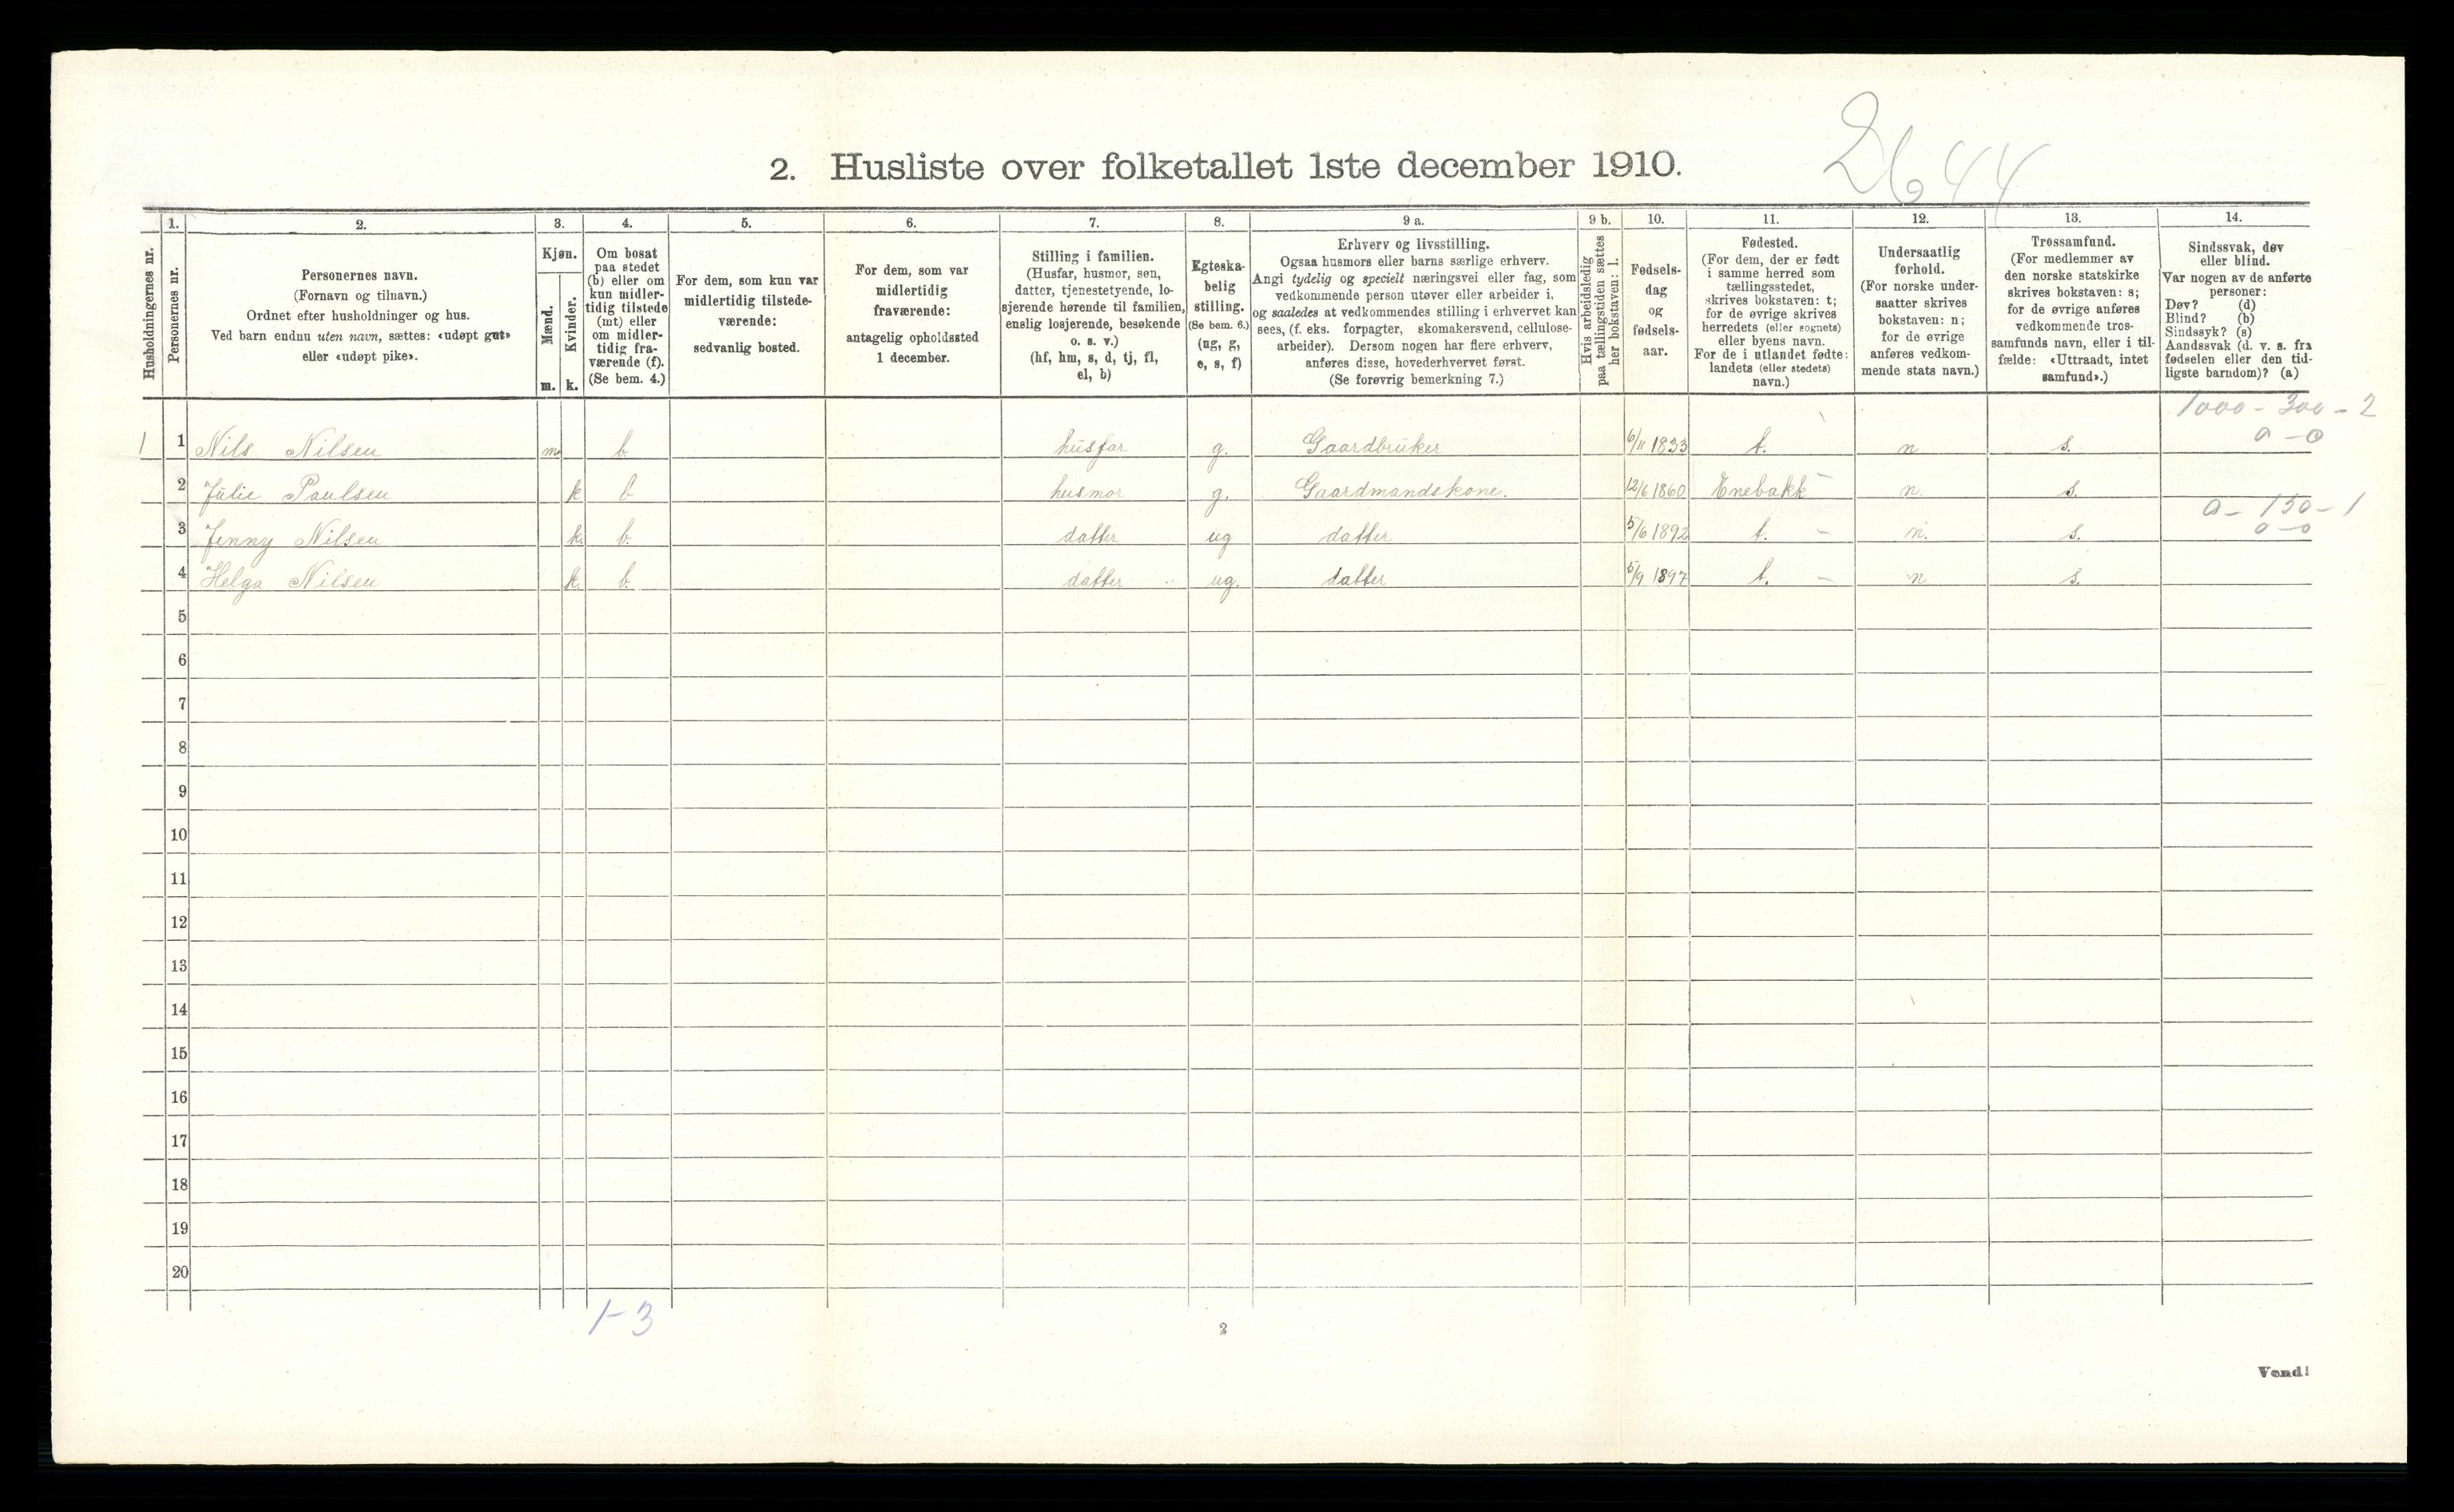 2644
2. Husliste over folketallet 1ste december 1910.
Husholdningernes nr.
1. Personernes nr.
2.
Personernes navn.
(Fornavn og tilnavn.)
Ordnet efter husholdninger og hus.
Ved barn endnu uten navn, sættes: «udøpt gut»
eller «udøpt pike».
3.
Kjøn.
Mænd. m.
Kvinder. k.
4.
Om bosat
paa stedet
(b) eller om
kun midler-
tidig tilstede
(mt) eller
om midler-
tidig fra-
værende (f).
(Se bem. 4.)
5.
For dem, som kun var
midlertidig tilstede-
værende:
sedvanlig bosted.
6.
For dem, som var
midlertidig
fraværende:
antagelig opholdssted
1 december.
7.
Stilling i familien.
(Husfar, husmor, søn,
datter, tjenestetyende, lo-
sjerende hørende til familien,
enslig losjerende, besøkende
o. s. v.)
(hf, hm, s, d, tj, fl,
el, b)
8.
Egteska-
belig
stilling.
(Se bem. 6.)
(ug, g,
e, s, f)
9 a.
Erhverv og livsstilling.
Ogsaa husmors eller barns særlige erhverv.
Angi tydelig og specielt næringsvei eller fag, som
vedkommende person utøver eller arbeider i,
og saaledes at vedkommendes stilling i erhvervet kan
sees, (f. eks. forpagter, skomakersvend, cellulose-
arbeider). Dersom nogen har flere erhverv,
anføres disse, hovederhvervet først.
(Se forøvrig bemerkning 7.)
9 b.
Hvis arbeidsledig
paa tællingstiden sættes
her bokstaven: l.
10.
Fødsels-
dag
og
fødsels-
aar.
11.
Fødested.
(For dem, der er født
i samme herred som
tællingsstedet,
skrives bokstaven: t;
for de øvrige skrives
herredets (eller sognets)
eller byens navn.
For de i utlandet fødte:
landets (eller stedets)
navn.)
12.
Undersaatlig
forhold.
(For norske under-
saatter skrives
bokstaven: n;
for de øvrige
anføres vedkom-
mende stats navn.)
13.
Trossamfund.
(For medlemmer av
den norske statskirke
skrives bokstaven: s;
for de øvrige anføres
vedkommende tros-
samfunds navn, eller i til-
fælde: «Uttraadt, intet
samfund».)
14.
Sindssvak, døv
eller blind.
Var nogen av de anførte
personer:
Døv? (d)
Blind? (b)
Sindssyk? (s)
Aandssvak (d. v. s. fra
fødselen eller den tid-
ligste barndom)? (a)
1000 - 300 - 2
0 - 0
1 1 Nils Nilsen m b husfar g. Gaardbruker 6/11 1833 t. n s.
2 Julie Paulsen k b husmor g. Gaardmandskone. 12/6 1860 Enebakk n. s.
0 - 150 - 1
0 - 0
3 Jenny Nilsen k. b. datter ug datter 5/6 1892 t. - n. s.
4 Helga Nilsen k. b. datter ug. datter 5/9 1897 t. - n s.
5
6
7
8
9
10
11
12
13
14
15
16
17
18
19
20
1-3
2
Vend!